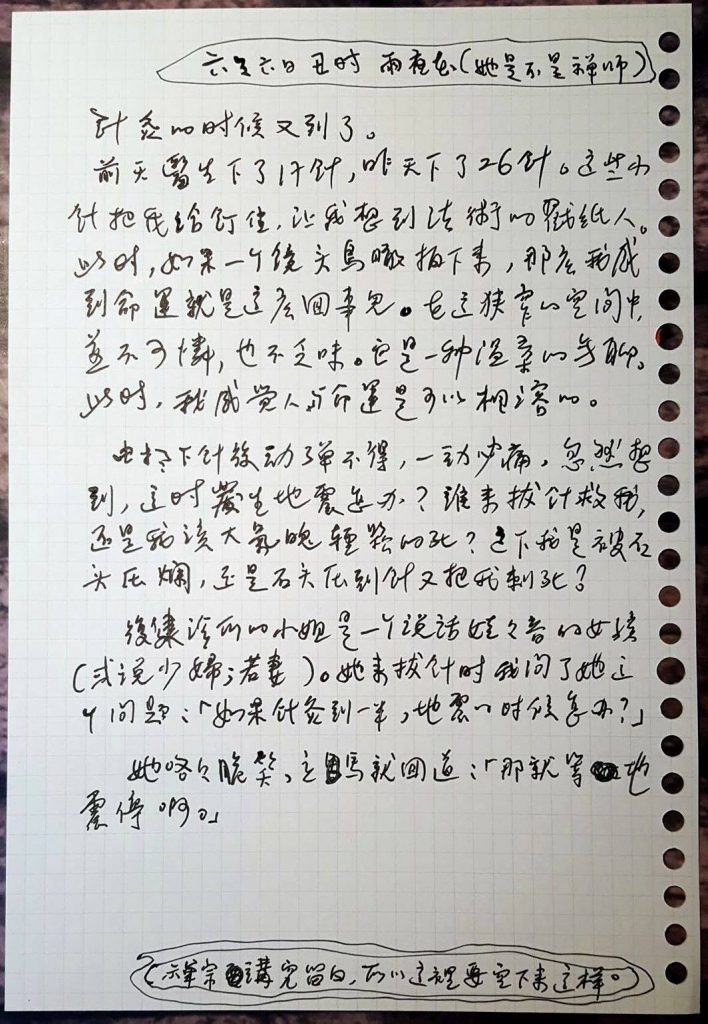 六月六日 丑时 雨夜(她是不是禅师)
針灸的时候又到了。
前天醫生下了17針,昨天下了26針。这些小
針把我给釘住,让我想到法術的戳紙人。
此时,如果一个镜头鳥瞰拍下来,那麼我感
到命運就是这麼回事兒。在这狹窄的空间中,
並不可憐,也不乏味。它是一种温柔的无聊。
此时,我感觉人与命運是可以相溶的。
由於下針後动弹不得,一动必痛,忽然想
到,这时發生地震怎办?誰来拔針救我,
还是我該大氣魄輕鬆的死?之下我是被石
头压爛,还是石头压到針又把我刺死?
復健诊所的小姐是一个说话娃々音的女孩
(或说少婦;若妻)。她来拔針时我问了她这
个问题:「如果針灸到一半,地震的时候怎办?」
她咯々脆笑,立馬就回道:「那就等地
震停啊。」
(禅宗講究留白,所以这裡要空下来这样。)